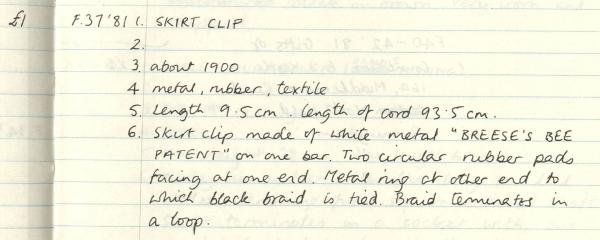 £1 F.37'81 1. SKIRT CLIP
2.
3. about 1900
4 metal, rubber, textile
5. Length 9.5cm. length of cord 93.5cm.
6. Skirt clip made of white metal "BREESE'S BEE
PATENT" on one bar. Two circular rubber pads
facing at one end. Metal ring at other end to
which black braid is tied. Braid terminates in
a loop.